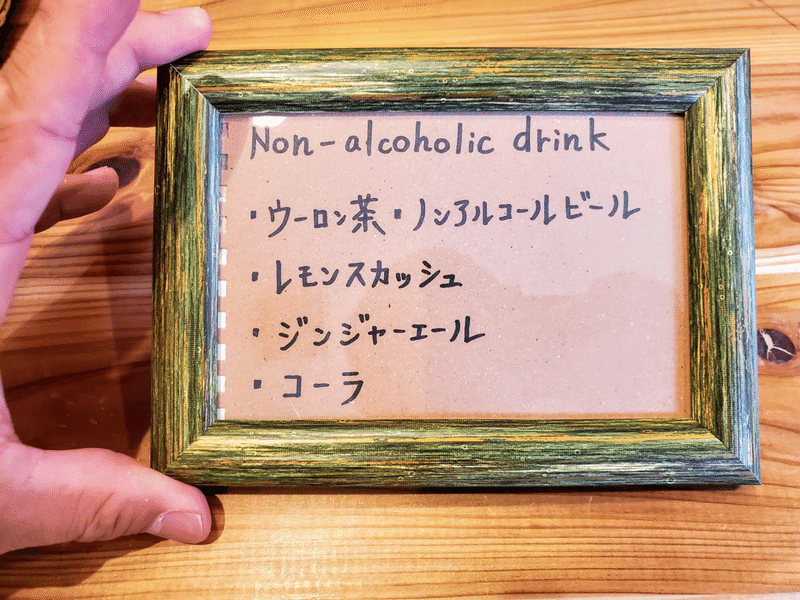 Non-alcoholic drink
・ウーロン茶・ノンアルコールビール
・レモンスカッシュ
・ジンジャーエール
・コーラ